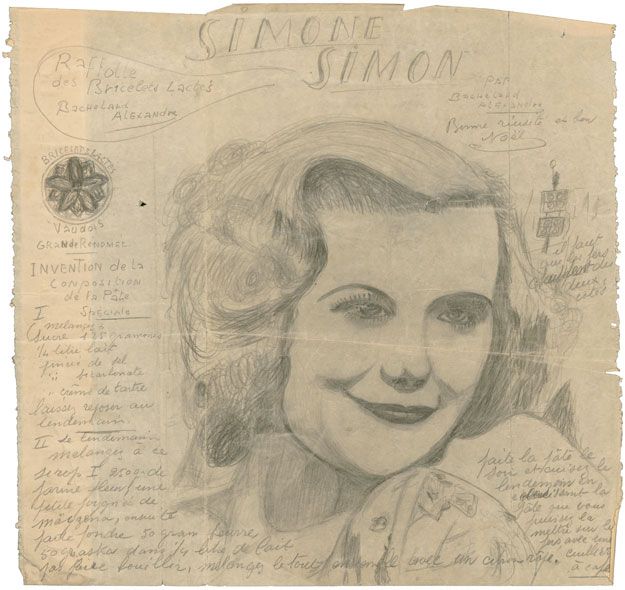 SIMONE
SIMON
Raff
olle
des Bricelets Lactés
Bachelard
Alexandre
Par
Bachelard
Alexandre
Bonne réussite et bon
Noël
BRICELETS LACTÉS
Vaudois
GRANDE RENOMÉE
INVENTION de la
COMPOSITION
de la Pâte
Speciale
I
melangez
sucre 125 grammes
1/4 litre lait
pincée de sel
" bicarbonate
" crême de tartre
laissez reposer au
lendemain
II Le lendemain
melangez à ce
sirop I 250 gr de
farine fleur une
petite poignée de
maïzena, ensuite
faite fondre 50 gram beurre
50 gr dans 1/4 litre de lait
pas faire bouillir, mélangez le tout ensemble avec un citron râpé.
il faut
que les fers
des
deux
côtés
faite la pâte le
soir et cuisez le
lendemain En
la
pâte que vous
puissiez la
mettre sur le
fers avec une
cuillère
à café